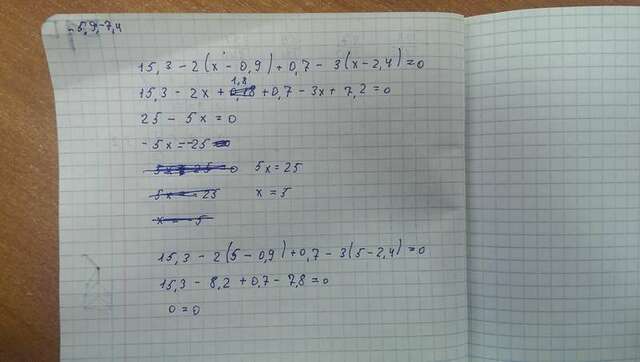 15,3 - 2(x - 0,9) + 0,7 - 3(x - 2,4) = 0
1,8
15,3 - 2x + 0,18 + 0,7 - 3x + 7,2 = 0
25 - 5x = 0
-5x = -25
5x = 25
5x = -25 x = 5
x = -5
15,3 - 2(5 - 0,9) + 0,7 - 3(5 - 2,4) = 0
15,3 - 8,2 + 0,7 - 7,8 = 0
0 = 0